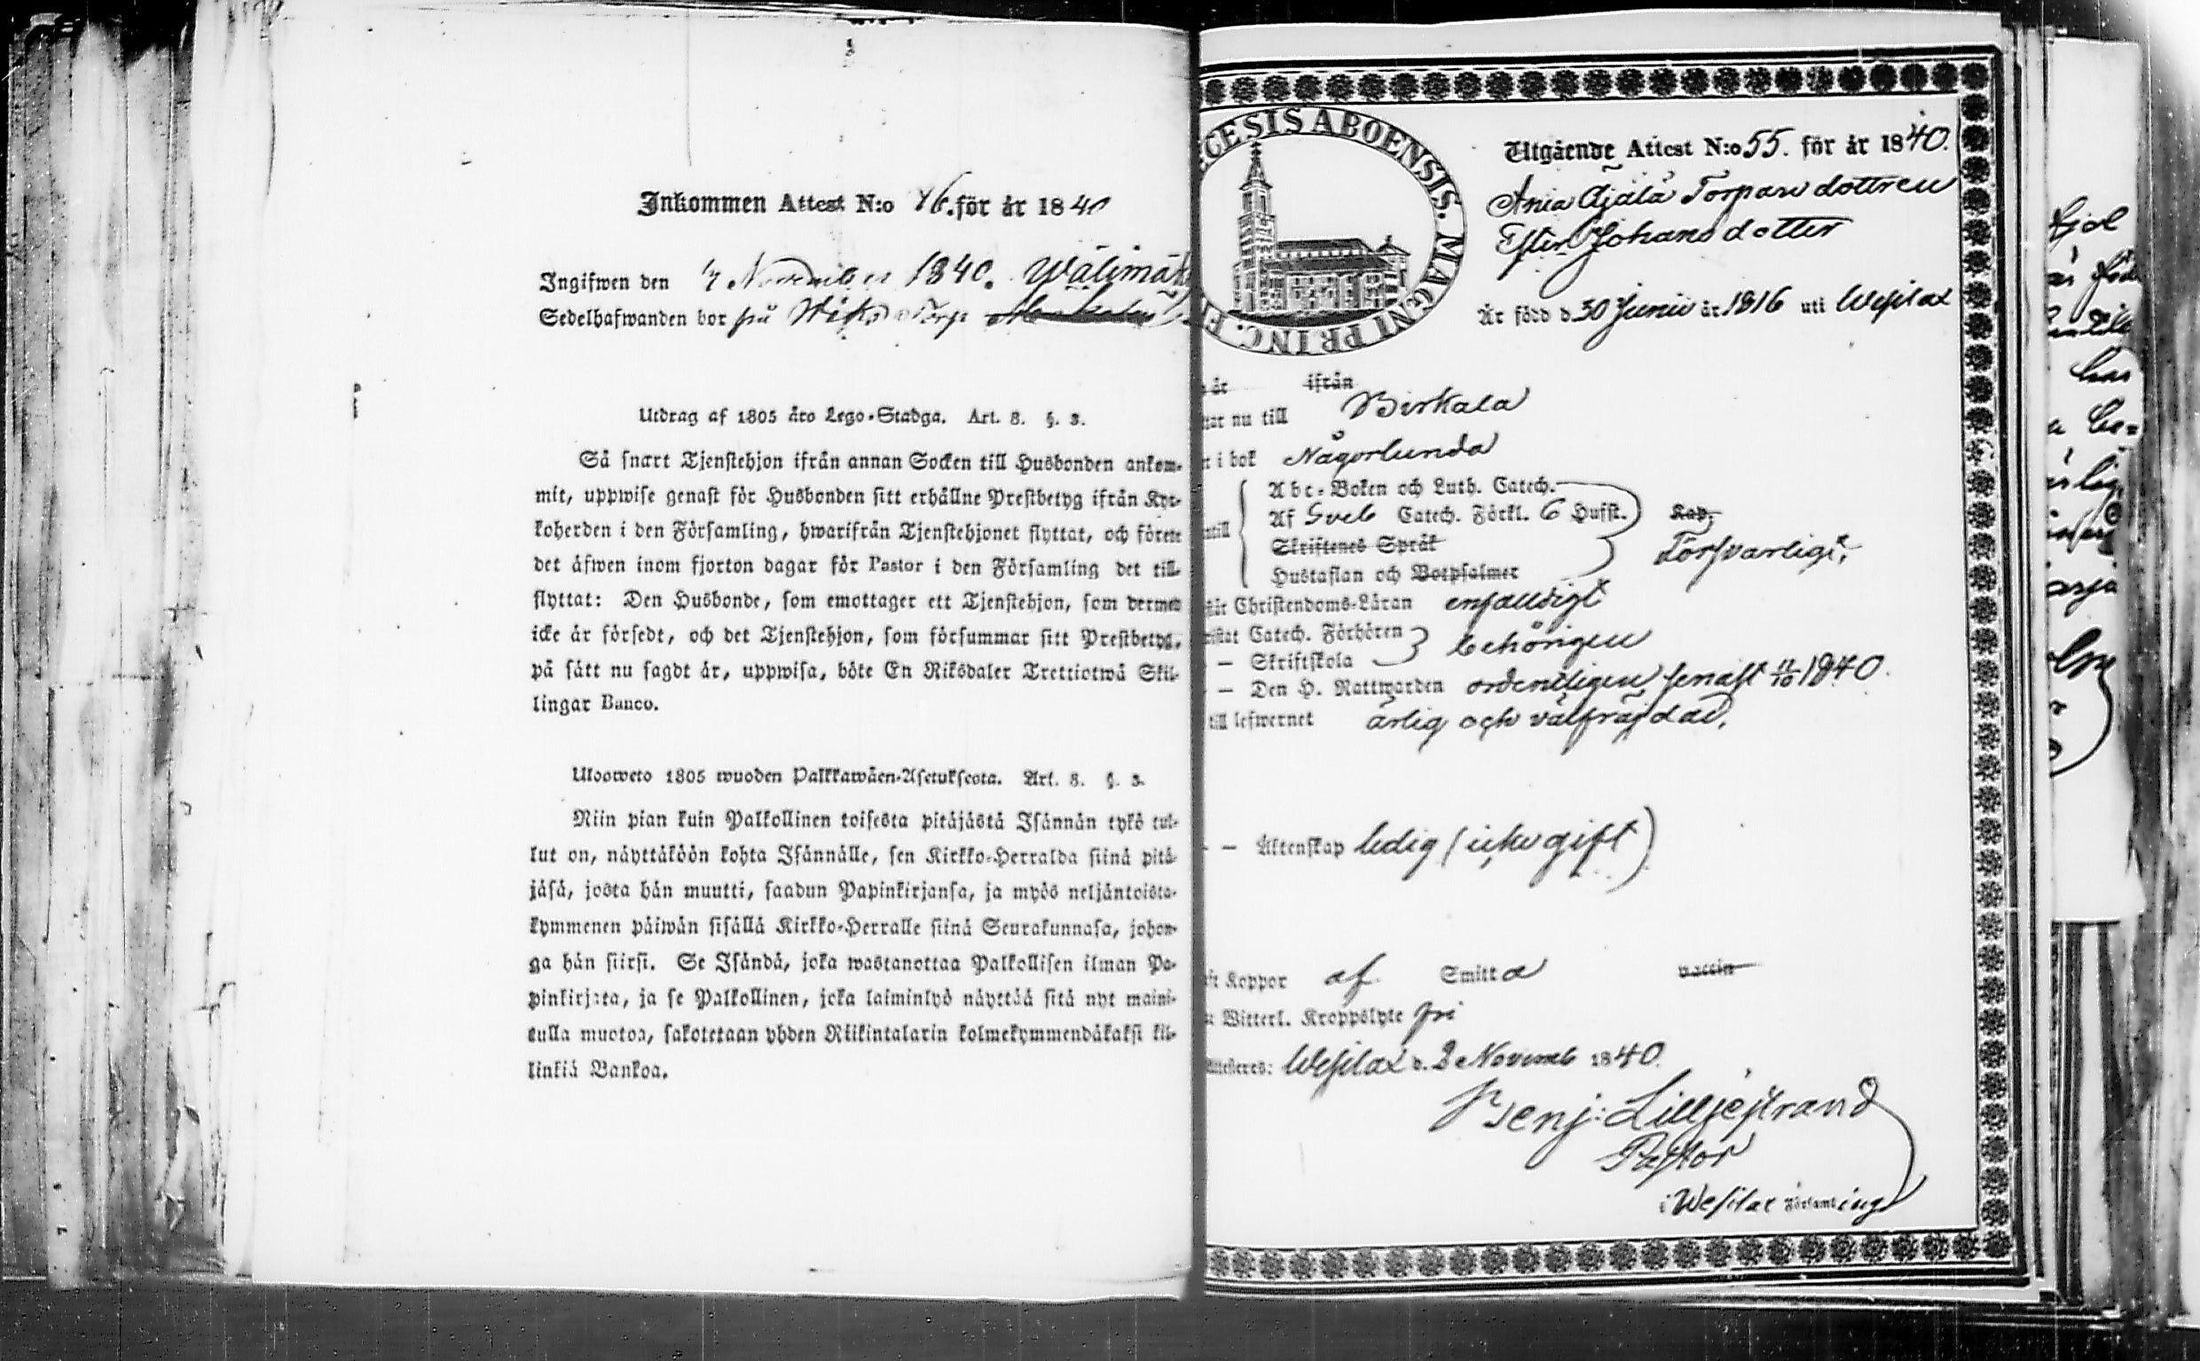 Inkommen Attest N:o 46. för år 1840
Ingifwen den 7 November 1840. Wälimäk
Sedelhafwanden bor på Wiks Torp
Utdrag af 1805 års Lego-Stadga. Art. 8. §. 3.
Så snart Tjenstehjon ifrån annan Socken till Husbonden ankom-
mit, uppwise genast för Husbonden sitt erhållne Prestbetyg ifrån Kyr-
koherden i den Församling, hwarifrån Tjenstehjonet flyttat, och förete
det äfwen inom fjorton dagar för Pastor i den Församling det till-
flyttat: Den Husbonde, som emottager ett Tjenstehjon, som dermed
icke är försedt, och det Tjenstehjon, som försummar sitt Prestbetyg,
på sätt nu sagdt är, uppwisa, böte En Riksdaler Trettiotwå Skil-
lingar Banco.
Ulosweto 1805 wuoden Palkkawäen-Asetuksesta. Art. 8. §. 3.
Niin pian kuin Palkollinen toisesta pitäjästä Isännän tykö tul-
lut on, näyttäköön kohta Isännälle, sen Kirkko-Herralda siinä pitä-
jäsä, josta hän muutti, saadun Papinkirjansa, ja myös neljäntoista-
kymmenen päiwän sisällä Kirkko-Herralle siinä Seurakunnasa, johon-
ga hän siirsi. Se Isändä, joka wastanottaa Palkollisen ilman Pa-
pinkirjata, ja se Palkollinen, joka laiminlyö näyttää sitä nyt maini-
tulla muotoa, sakotetaan yhden Riikintalarin kolmekymmendäkaksi kil-
linkiä Bankoa.
CESIS ABOENSIS. MAGNI PRINC. F
Utgående Attest N:o 55. för år 1840.
Ania Äjälä Torpare dottren
Ester Johansdotter
Är född d. 30 Junii år 1816 uti Wesilax
år ifrån
tar nu till Birkala
r i bok Någorlunda
Abc-Boken och Luth. Catech.
Af Sveb Catech. Förkl. 6 Hufst.
Kap.
Skriftenes Språk
Försvarligt,
Hustaflan och Botpsalmer
Christendoms-Läran enfaldigt
Catech. Förhören
behörigen
— Skriftskola
— Den H. Nattwarden ordentligen senast 11/10 1840.
till lefwernet ärlig och välfräjdad,
— Äktenskap ledig (icke gift)
Koppor af Smitta vaccin
Witterl. Kroppslyte fri
Attesteres: Wesilax d. 2 Novemb 1840.
Benj: Lilljestrand
Pastor
i Wesilax Församling